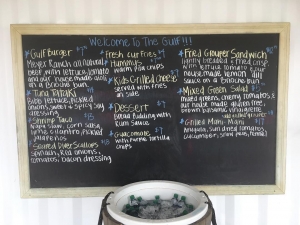 Welcome To The Gulf!!!
Gulf Burger
Meyer Ranch all natural
beef with lettuce tomato
and our house made aioli
on a Brioche Bun
Tuna
Bibb lettuce, pickled
onions, sweet + spicy soy
dressing
Shrimp Taco
Napa slaw, corn salsa
lime cilantro, pickled
jalapenos
Seared Diver Scallops
spinach, red onions,
tomatoes, bacon dressing
Fresh Cut Fries
Hummus
warm pita chips
Kids Grilled Cheese
served with fries
on side
Dessert
bread pudding with
Rum Sauce
Guacamole
with
tortilla
chips
Fried Grouper Sandwich
lightly breaded + fried crisp
with lettuce tomato + our
house made lemon dill
sauce on a Brioche Bun
Mixed Green Salad
mixed greens, cherry tomatoes +
our house made
Grilled Mahi-Mahi $17
Arugula, sun dried tomatoes,
cucumber,